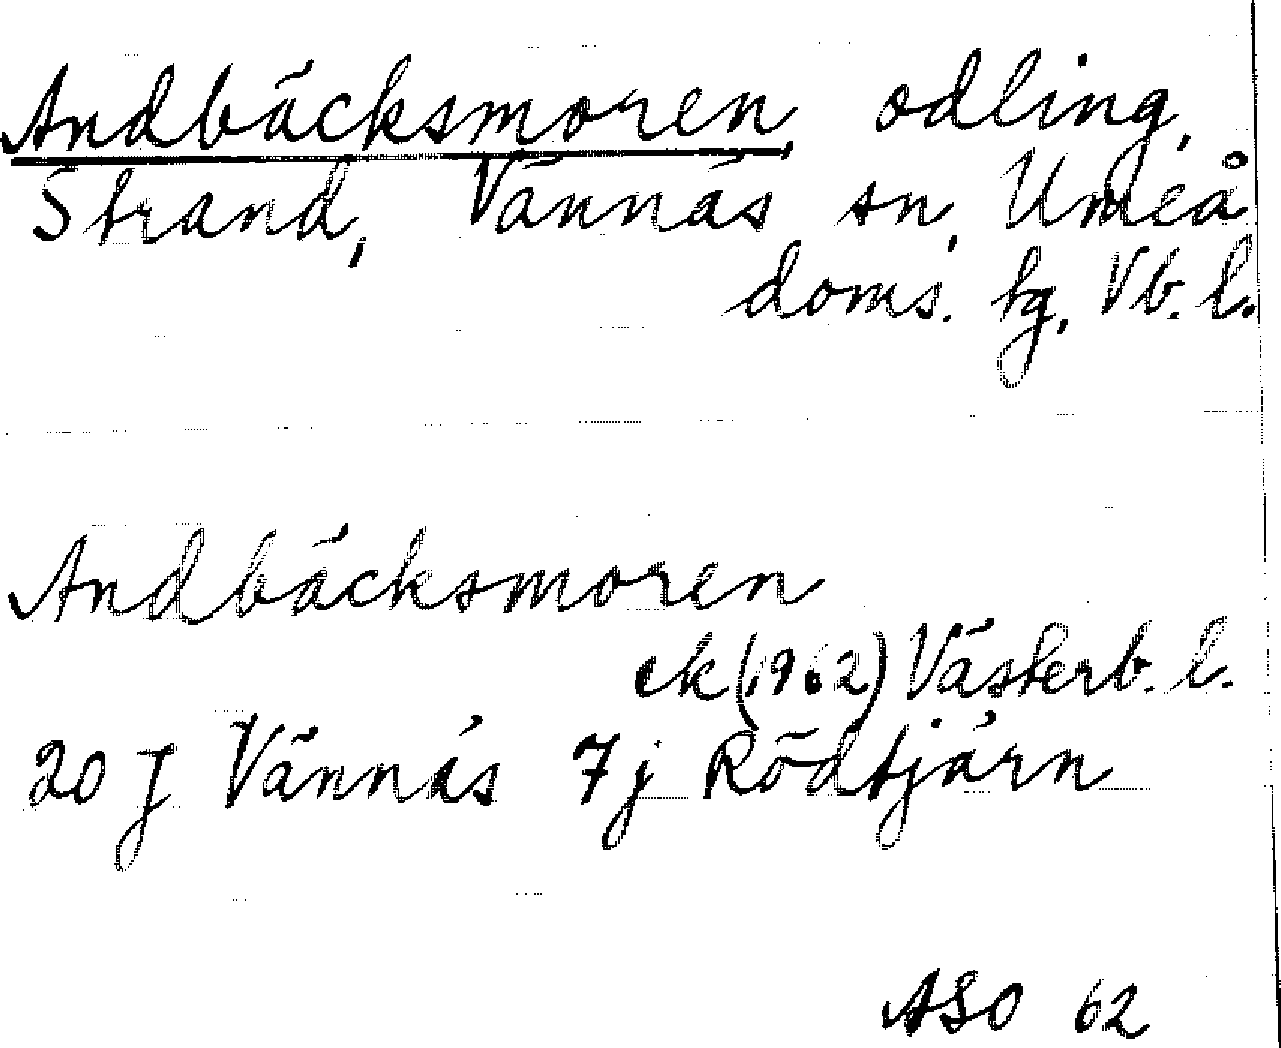 Andbäcksmoren, odling,
Strand, Vännäs sn, Umeå
doms. tg, Vb. l.
Andbäcksmoren
ek (1962) Västerb. l.
20 J Vännäs 7j Rödtjärn
ASO 62